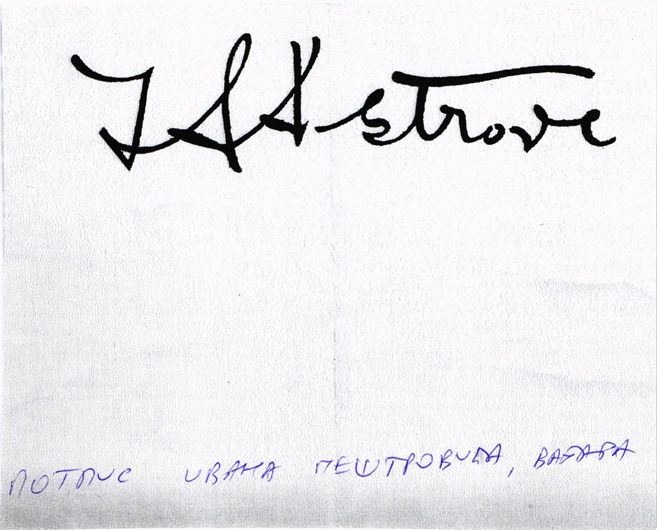 I Mestrovic
ПОТПИС ИВАНА МЕШТРОВИЋА, ВАЈАРА